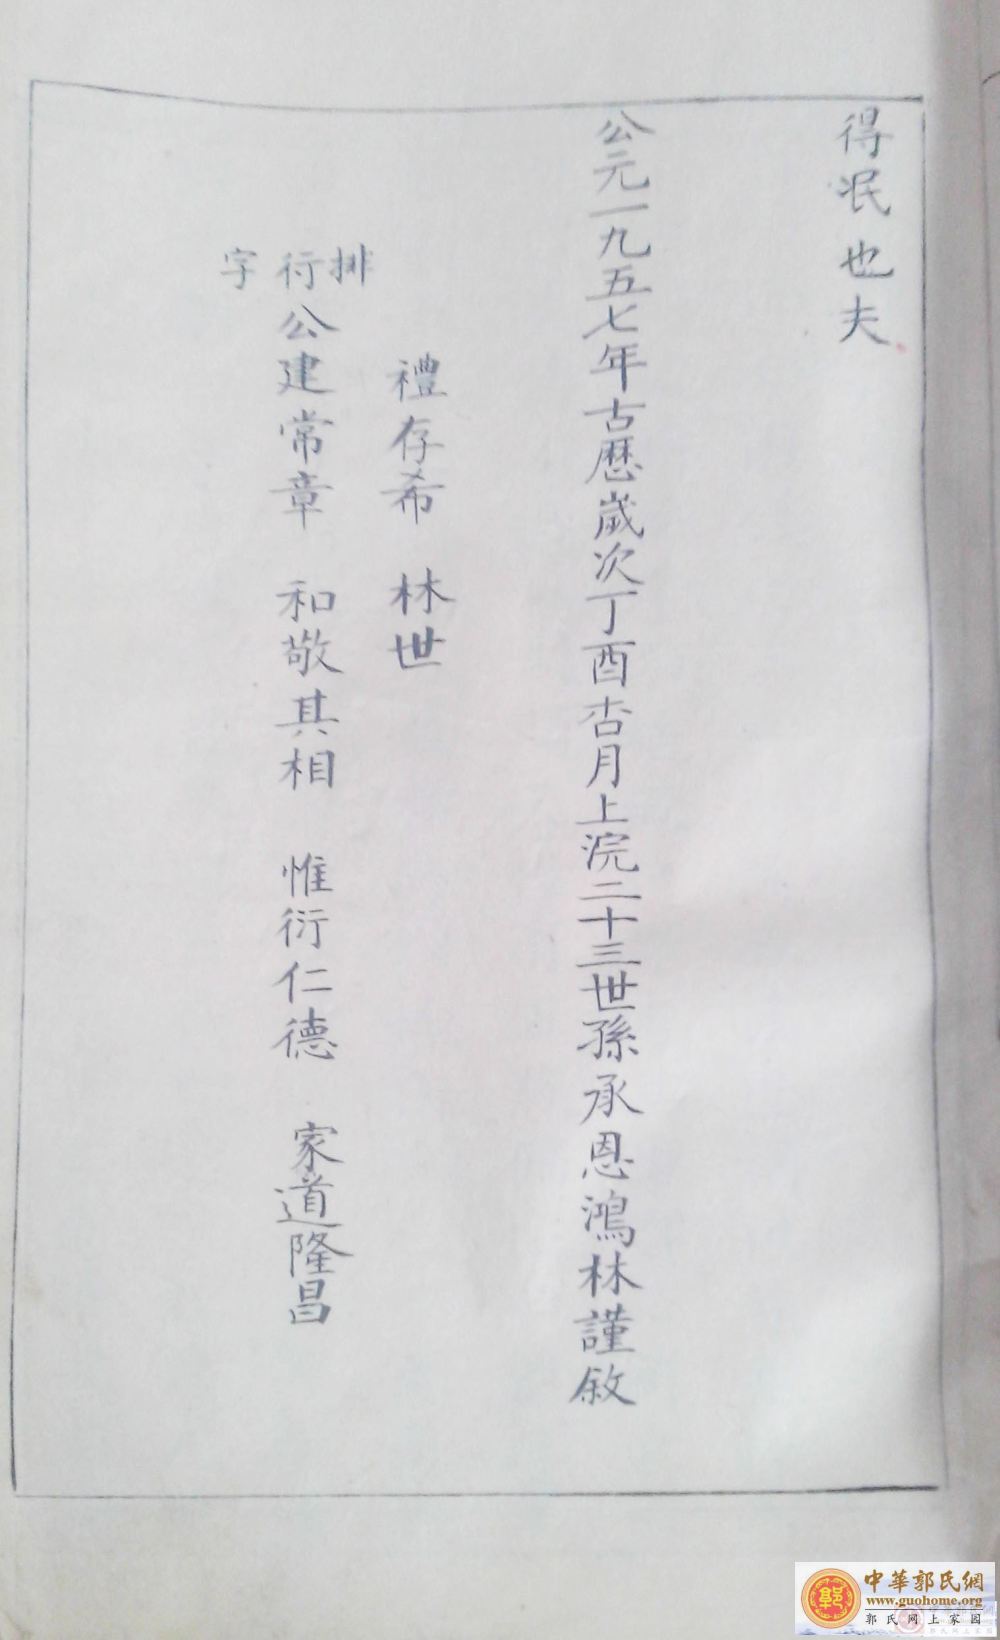 得泯也夫
公元一九五七年古歷歲次丁酉杏月上浣二十三世孫承恩鴻林謹敘
禮存希 林世
排行字
公建常章 和敬其相 惟衍仁德 家道隆昌
中華郭氏網
www.guohome.org
郭氏网上家园